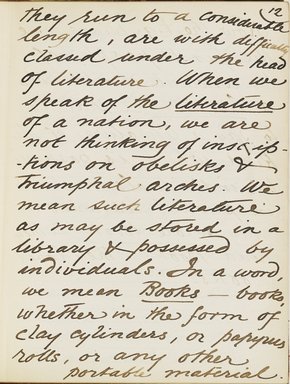 12
they run to a considerable
length, are with difficulty
classed under the head
of literature. When we
speak of the literature
of a nation, we are
not thinking of inscrip-
tions on obelisks &
triumphal arches. We
mean such literature
as may be stored in a
library & possessed by
individuals. In a word,
we mean Books — books,
whether in the form of
clay cylinders, or papyrus
rolls, or any other
portable material.